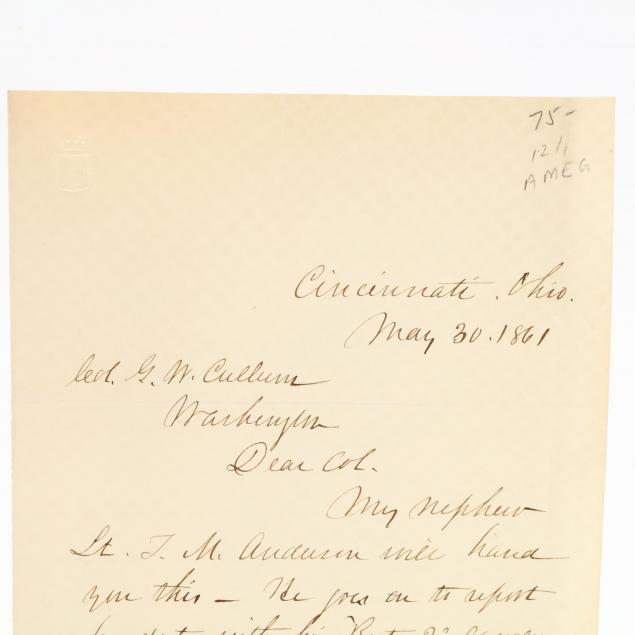 75-
12/1
AMEG
Cincinnati, Ohio.
May 30. 1861
Col. G. W. Cullum
Washington
Dear Col.
My nephew
Lt. T. M. Anderson will hand
you this - He goes on to report